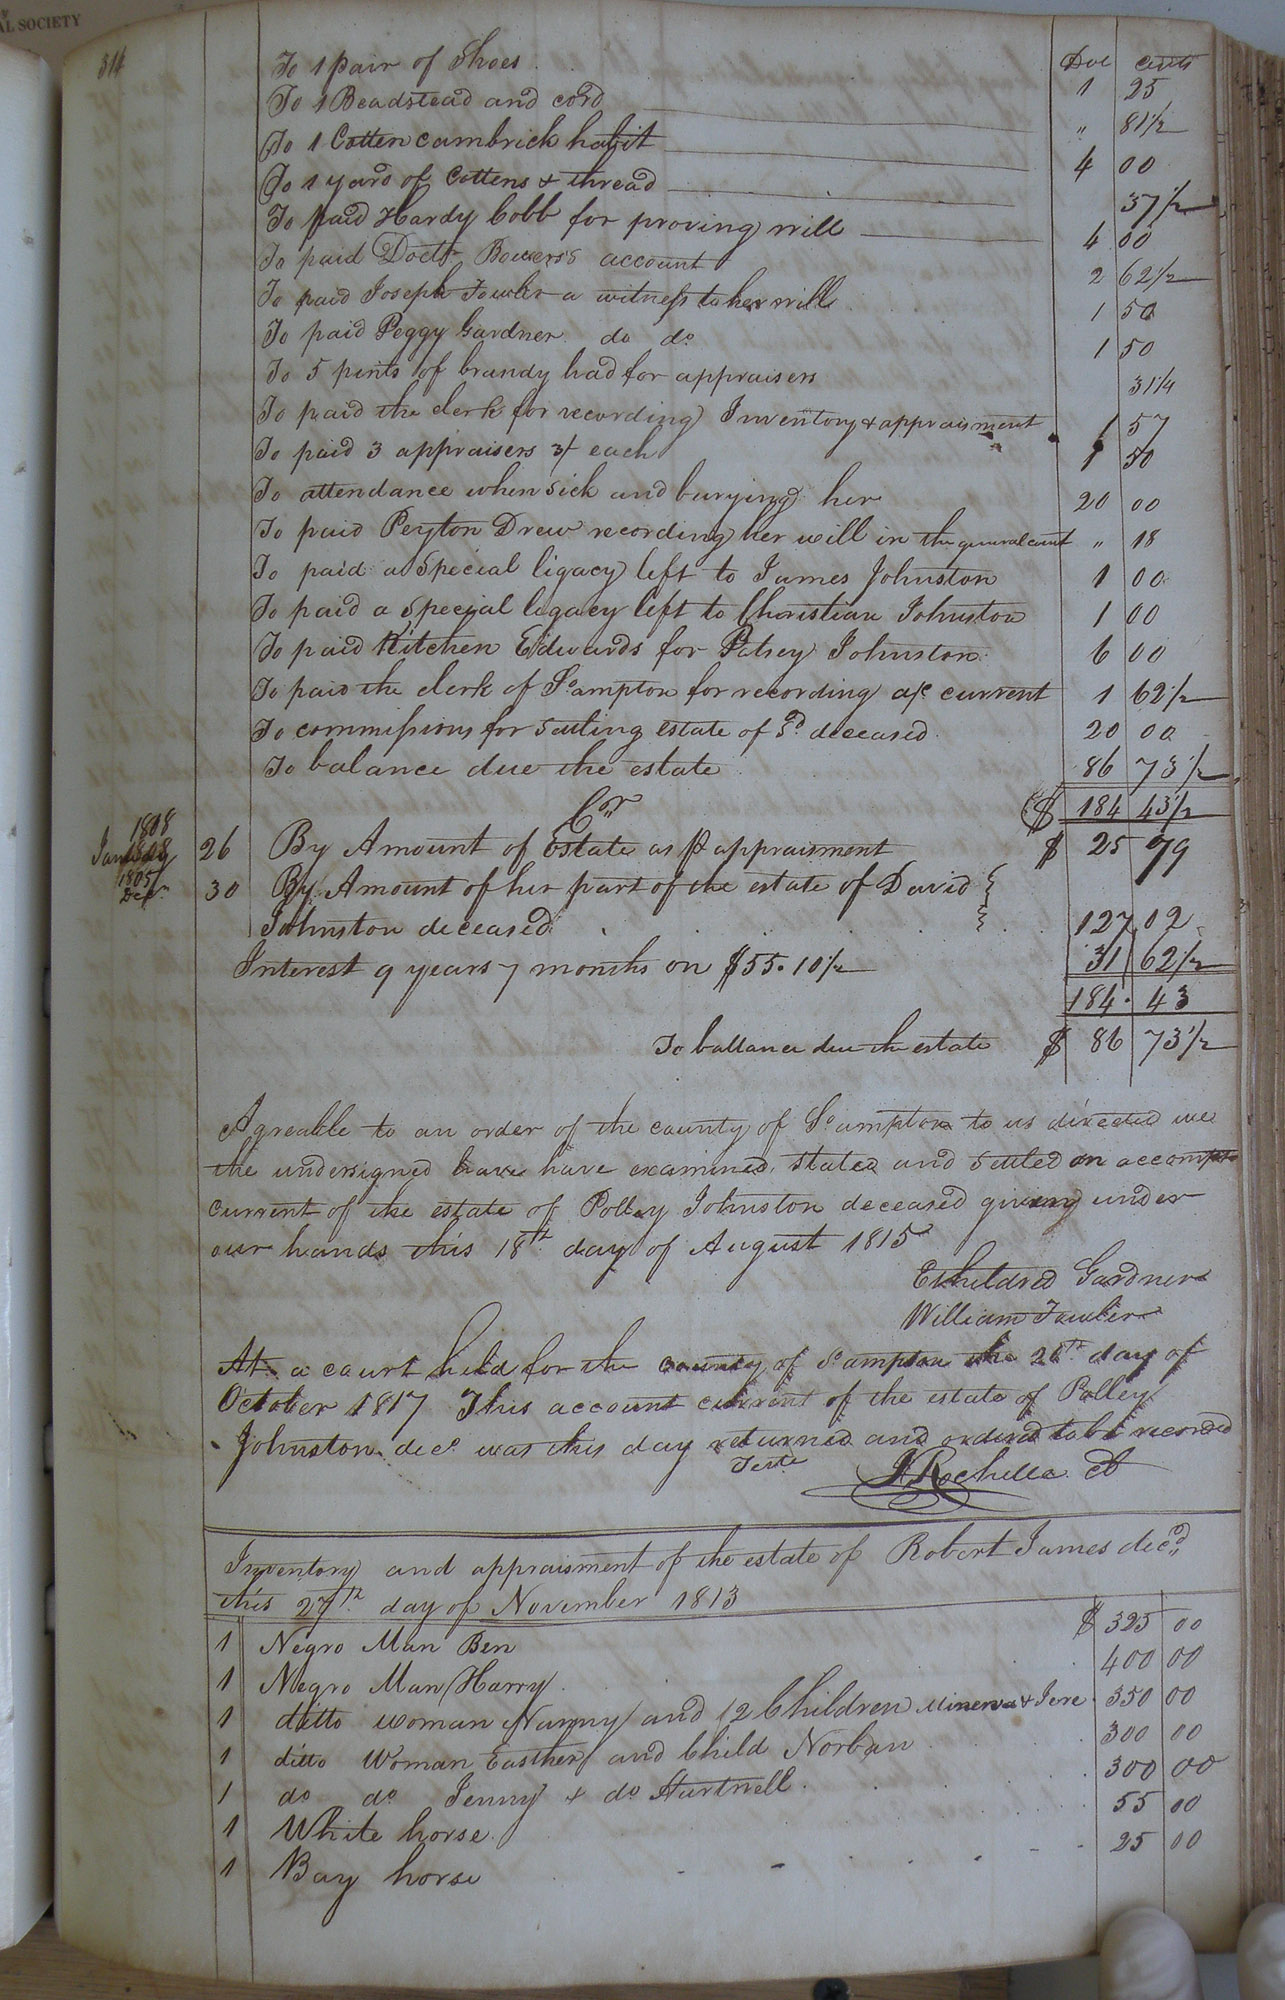 AL SOCIETY
314 Dol cents
To 1 pair of Shoes 1 25
To 1 Beadstead and cord " 81 1/2
To 1 Cotten cambrick habit 4 00
To 1 yard of Cottens & thread 37 1/2
To paid Hardy Cobb for proving will 4 00
To paid Doctr Bowers's account 2 62 1/2
To paid Joseph Fowler a witness to her will 1 50
To paid Peggy Gardner do do 1 50
To 5 pints of brandy had for appraisers 31 1/4
To paid the clerk for recording Inventory & appraisment 1 57
To paid 3 appraisers 3/ each 1 50
To attendance when sick and burying her 20 00
To paid Peyton Drew recording her will in the general court " 18
To paid a Special ligacy left to James Johnston 1 00
To paid a Special legacy left to Christian Johnston 1 00
To paid Kitchen Edwards for Patsey Johnston 6 00
To paid the clerk of So ampton for recording a/c current 1 62 1/2
To commissions for Settling estate of Sd deceased 20 00
To balance due the estate 86 73 1/2
Cr $ 184 43 1/2
1808
26 By Amount of Estate as pr appraisment $ 25 79
1805
Decr 30 By Amount of her part of the estate of David
Johnston deceased 127 02
Interest 9 years 7 months on $55.10 1/2 31 62 1/2
184 . 43
To ballance due the estate $ 86 73 1/2
Agreable to an order of the county of So ampton to us directed we
the undersigned have have examined, stated and settled an accompt
current of the estate of Polley Johnston deceased giveing under
our hands this 18th day of August 1815
Etheldred Gardner
William Fowler
At a court held for the county of So ampton the 20th day of
October 1817 This account current of the estate of Polley
Johnston decd was this day returned and ordered to be recorded
Teste J Rochelle Ct
Inventory and appraisment of the estate of Robert James decd
this 27th day of November 1813
1 Negro Man Ben $ 325 00
1 Negro Man Harry 400 00
1 ditto woman Nanny and 2 Children Minerva & Jere 350 00
1 ditto Woman Easther and Child Norban 300 00
1 do do Jenny & do Hartwell 300 00
1 White horse 55 00
1 Bay horse 25 00